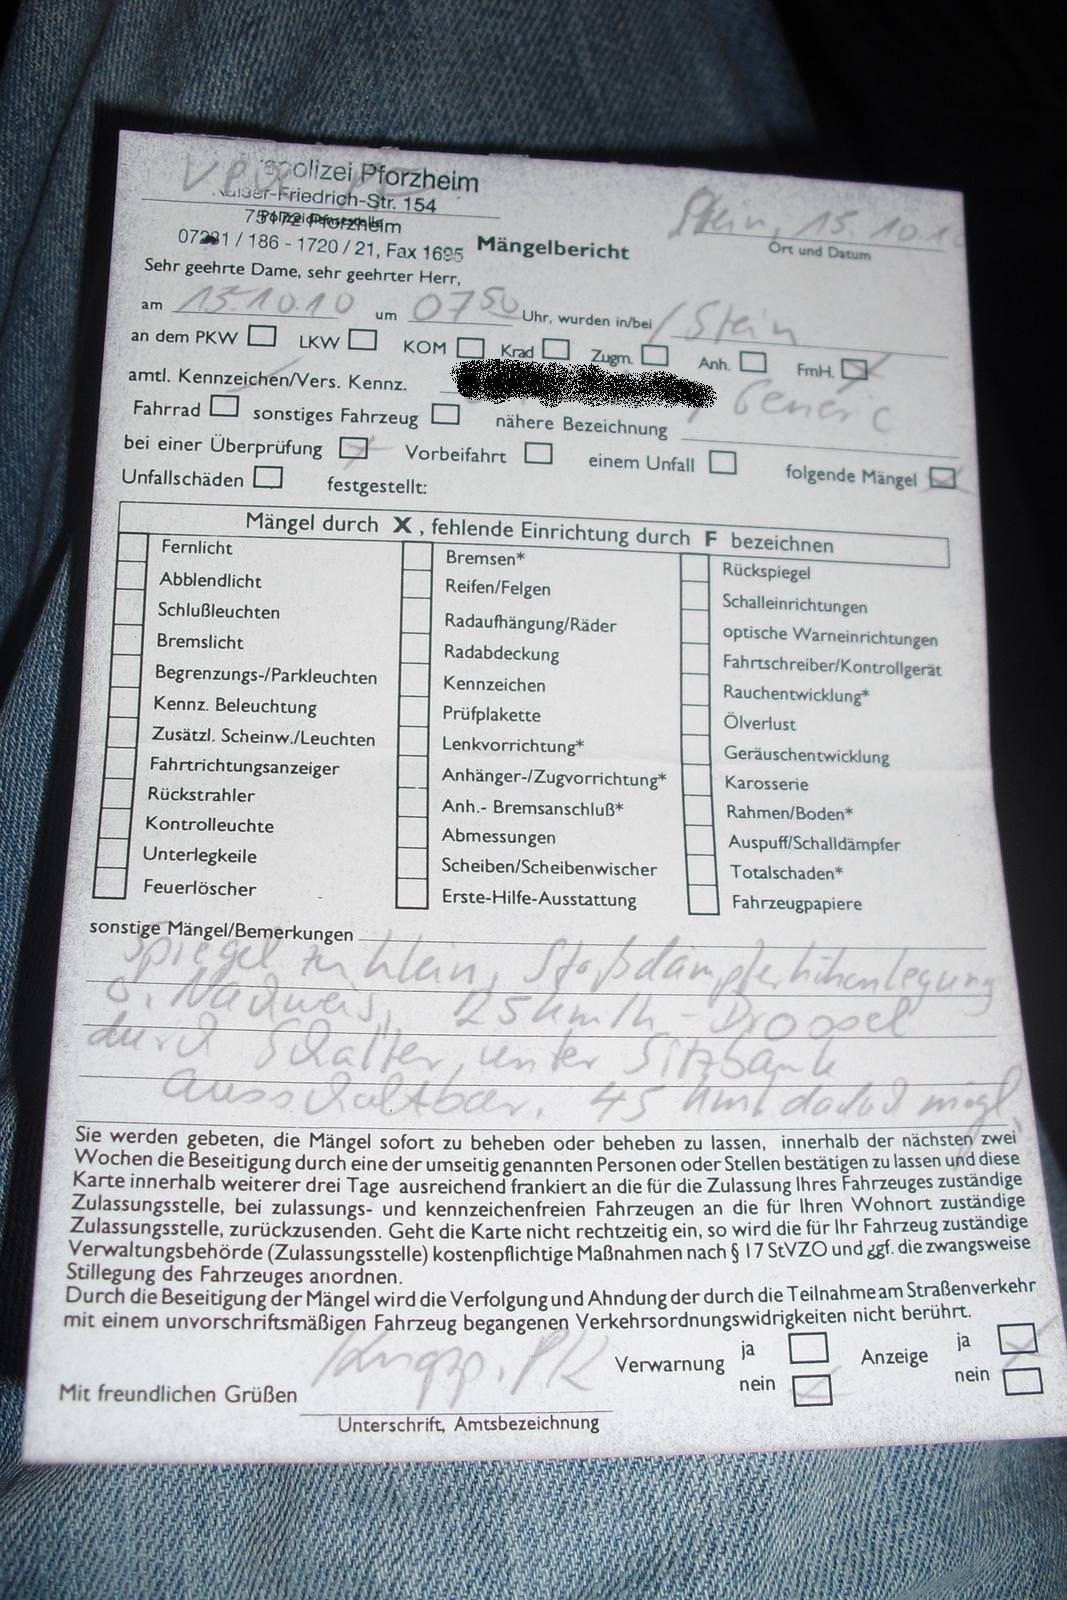 polizei Pforzheim
Kaiser-Friedrich-Str. 154
75172 Pforzheim
07231 / 186 - 1720 / 21, Fax 1695
Mängelbericht
Stein, 15.10.10
Ort und Datum
Sehr geehrte Dame, sehr geehrter Herr,
am 15.10.10 um 07 50 Uhr, wurden in/bei Stein
an dem PKW LKW KOM Krad Zugm. Anh. FmH.
amtl. Kennzeichen/Vers. Kennz.
Fahrrad sonstiges Fahrzeug nähere Bezeichnung Generic
bei einer Überprüfung Vorbeifahrt einem Unfall folgende Mängel
Unfallschäden festgestellt:
Mängel durch X, fehlende Einrichtung durch F bezeichnen
Fernlicht
Abblendlicht
Schlußleuchten
Bremslicht
Begrenzungs-/Parkleuchten
Kennz. Beleuchtung
Zusätzl. Scheinw./Leuchten
Fahrtrichtungsanzeiger
Rückstrahler
Kontrolleuchte
Unterlegkeile
Feuerlöscher
Bremsen*
Reifen/Felgen
Radaufhängung/Räder
Radabdeckung
Kennzeichen
Prüfplakette
Lenkvorrichtung*
Anhänger-/Zugvorrichtung*
Anh.- Bremsanschluß*
Abmessungen
Scheiben/Scheibenwischer
Erste-Hilfe-Ausstattung
Rückspiegel
Schalleinrichtungen
optische Warneinrichtungen
Fahrtschreiber/Kontrollgerät
Rauchentwicklung*
Ölverlust
Geräuschentwicklung
Karosserie
Rahmen/Boden*
Auspuff/Schalldämpfer
Totalschaden*
Fahrzeugpapiere
sonstige Mängel/Bemerkungen
Spiegel zu klein, Stoßdämpferhöhenlegung
o. Nachweis, 25 km/h - Droosel
durch Schalter unter Sitzbank
ausschaltbar. 45 km/h dadch mögl.
Sie werden gebeten, die Mängel sofort zu beheben oder beheben zu lassen, innerhalb der nächsten zwei
Wochen die Beseitigung durch eine der umseitig genannten Personen oder Stellen bestätigen zu lassen und diese
Karte innerhalb weiterer drei Tage ausreichend frankiert an die für die Zulassung Ihres Fahrzeuges zuständige
Zulassungsstelle, bei zulassungs- und kennzeichenfreien Fahrzeugen an die für Ihren Wohnort zuständige
Zulassungsstelle, zurückzusenden. Geht die Karte nicht rechtzeitig ein, so wird die für Ihr Fahrzeug zuständige
Verwaltungsbehörde (Zulassungsstelle) kostenpflichtige Maßnahmen nach § 17 StVZO und ggf. die zwangsweise
Stillegung des Fahrzeuges anordnen.
Durch die Beseitigung der Mängel wird die Verfolgung und Ahndung der durch die Teilnahme am Straßenverkehr
mit einem unvorschriftsmäßigen Fahrzeug begangenen Verkehrsordnungswidrigkeiten nicht berührt.
Verwarnung ja nein Anzeige ja nein
Mit freundlichen Grüßen
Unterschrift, Amtsbezeichnung